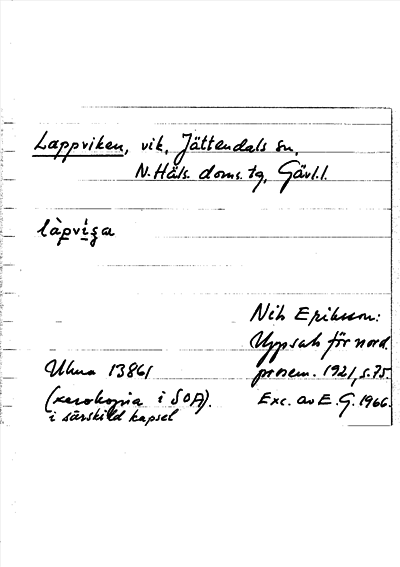 Lappviken, vik, Jättendals sn,
N. Häls. doms. tg, Gävl. l.
làpviga
Nils Eriksson:
Uppsats för nord.
prosem. 1921, s. 75.
Exc. av E. G. 1966.
Ulma 13861
(xerokopia i SOA).
i särskild kapsel